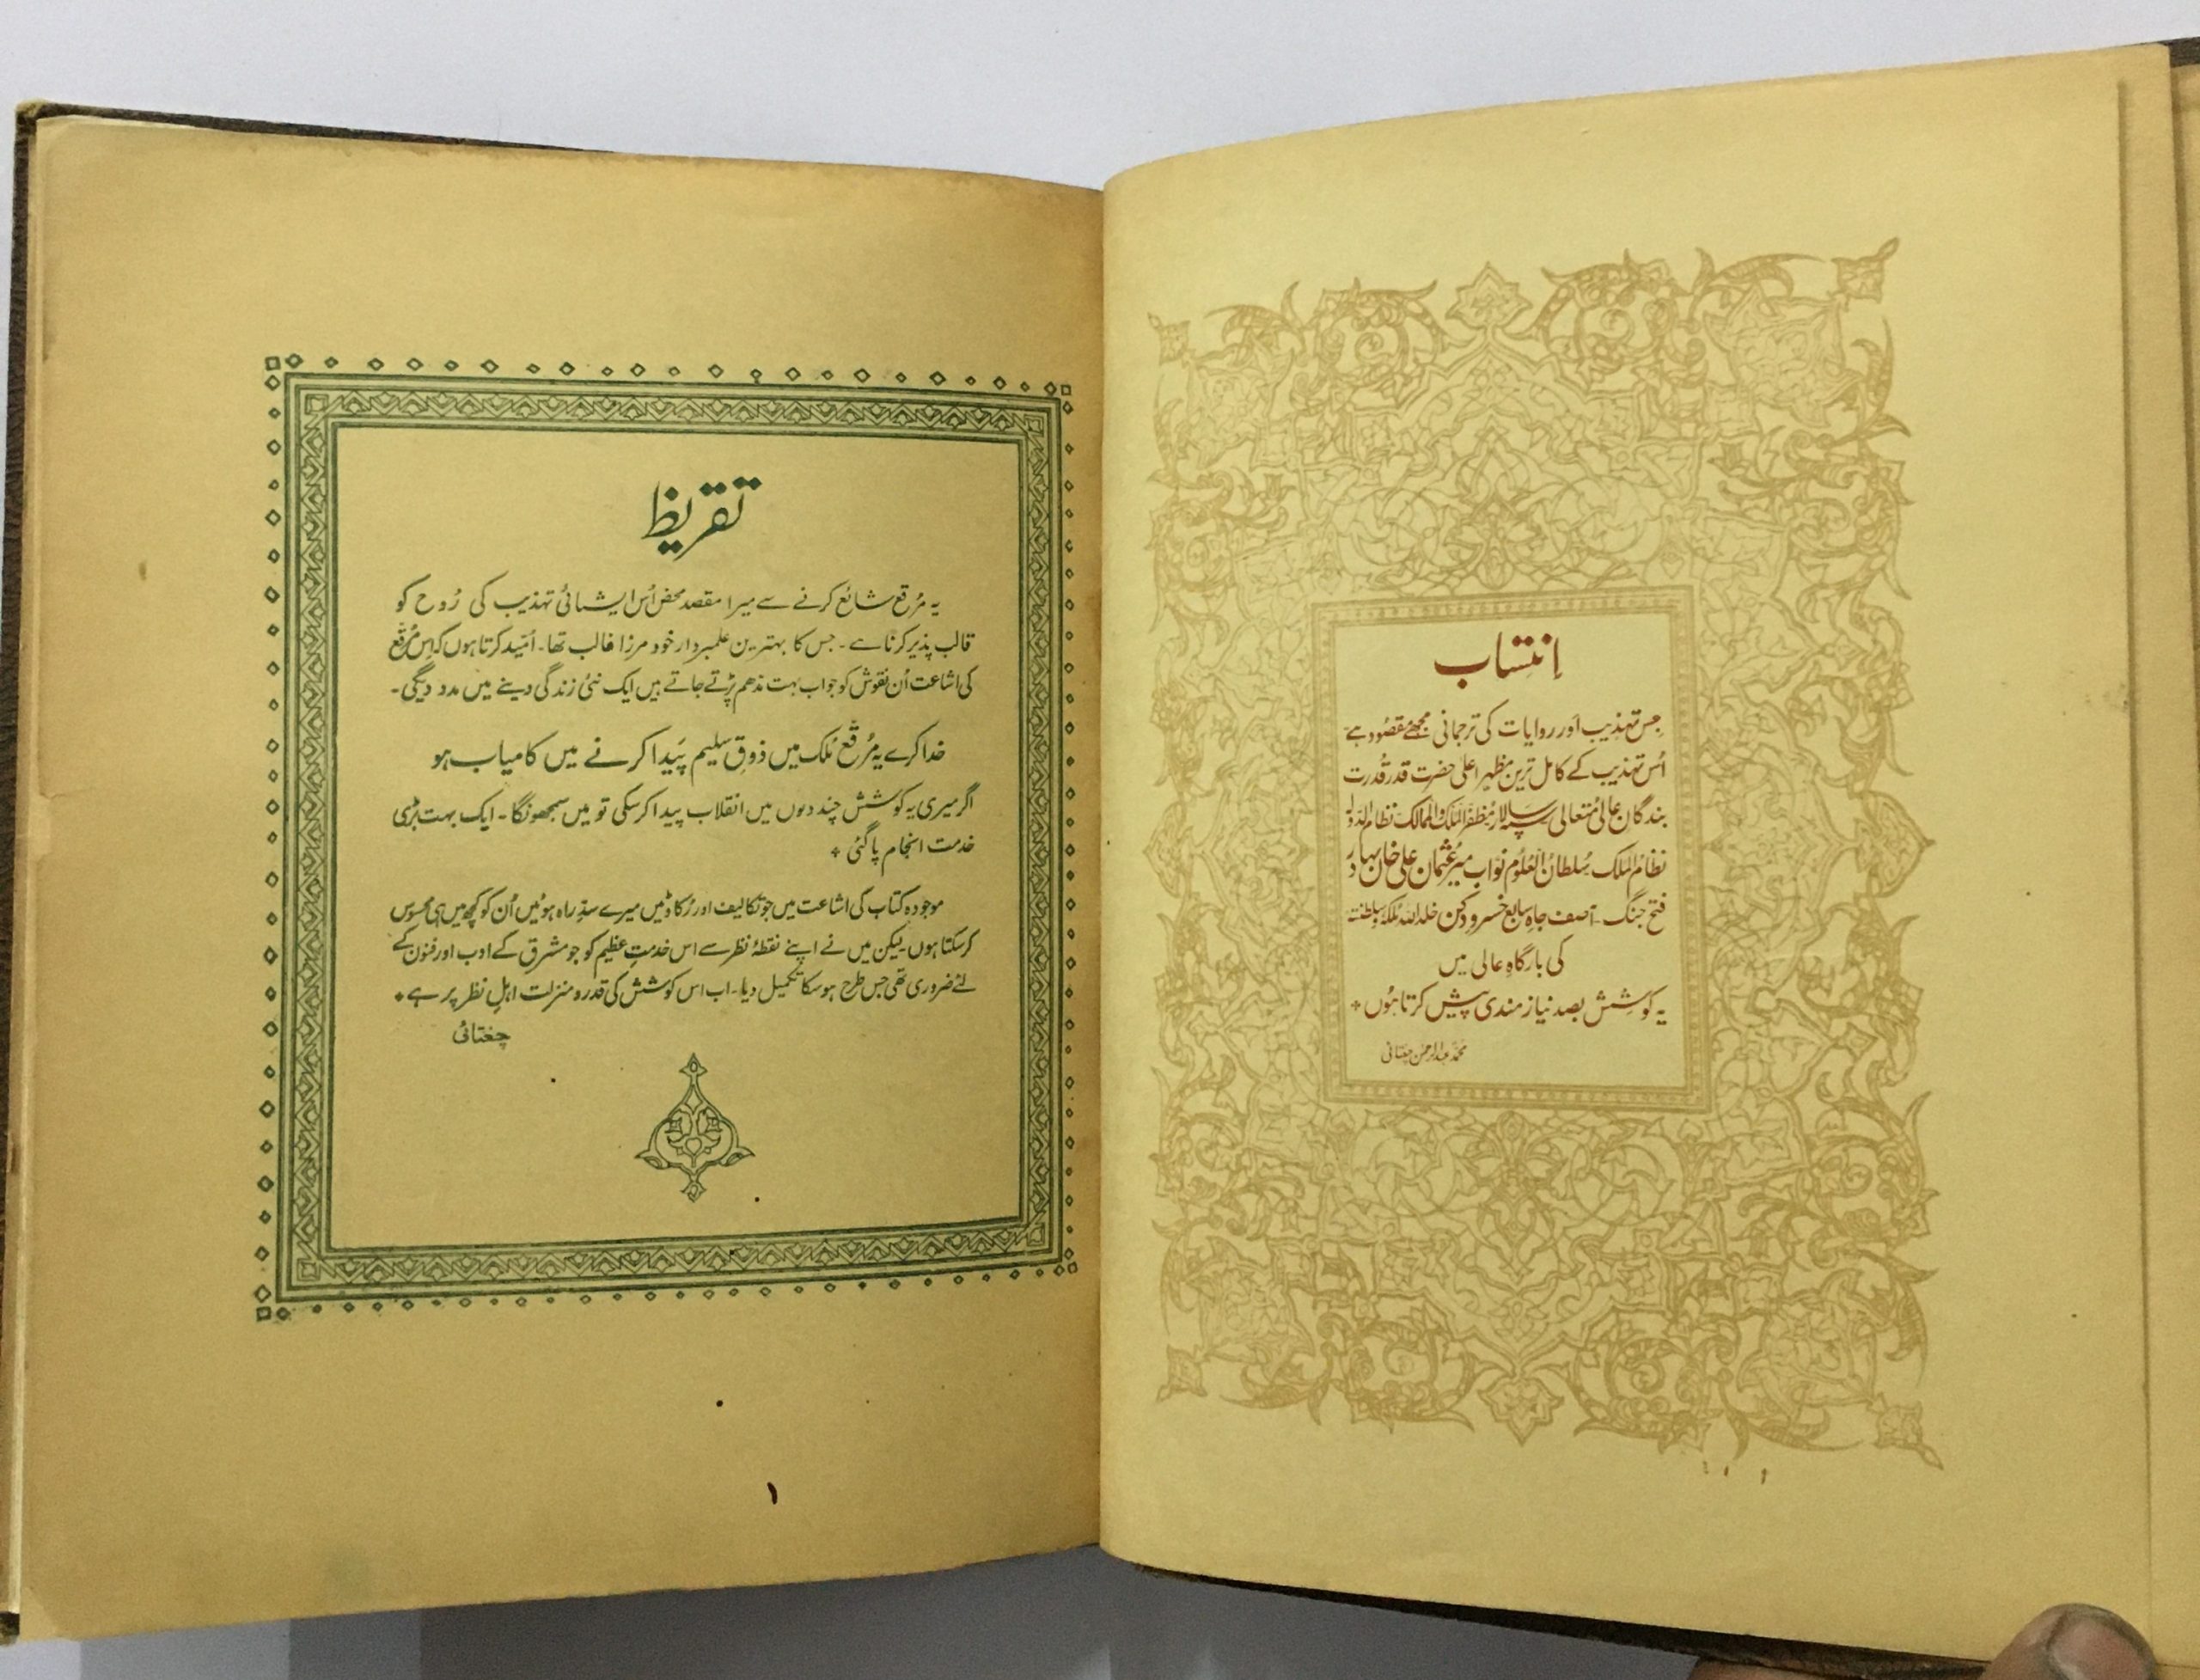 اِنتساب
جس تہذیب اور روایات کی ترجمانی مجھے مقصُود ہے
اُس تہذیب کے کامل ترین مظہر اعلیٰ حضرت قدر قُدرت
بندگانِ عالی مُتعالی سپہ سالار مُظفّر المُلک والممالک نظام الدّولہ
نظامُ المُلک سُلطانُ العُلوم نوّاب میر عُثمان علی خان بہادر
فتح جنگ ۔ آصف جاہِ سابع خُسروِ دکن خلد اللہ مُلکہٗ و سلطنتہٗ
کی بارگاہِ عالی میں
یہ کوشِش بصد نیازمندی پیش کرتا ہُوں ٭
محمّد عبدالرحمٰن چغتائی
تقریظ
یہ مُرقع شائع کرنے سے میرا مقصد محض اُس ایشیائی تہذیب کی رُوح کو
قالب پذیر کرنا ہے ۔ جس کا بہترین علمبردار خود مرزا غالب تھا ۔ اُمّید کرتا ہوں کہ اِس مُرقّع
کی اشاعت اُن نقوش کو جو اب بہت مدھم پڑتے جاتے ہیں ایک نئی زندگی دینے میں مدد دیگی ۔
خدا کرے یہ مُرقّع مُلک میں ذوقِ سلیم پَیدا کرنے میں کامیاب ہو
اگر میری یہ کوشش چند دلوں میں انقلاب پیدا کر سکی تو میں سمجھونگا ۔ ایک بہت بڑی
خدمت انجام پا گئی ٭
موجودہ کتاب کی اشاعت میں جو تکالیف اور رُکاوٹیں میرے سدِّ راہ ہوئیں اُن کو کچھ میں ہی محسوس
کر سکتا ہوں ۔ لیکن میں نے اپنے نقطۂ نظر سے اس خدمتِ عظیم کو جو مشرق کے ادب اور فنون کے
لئے ضروری تھی جس طرح ہو سکا تکمیل دیا ۔ اب اس کوشش کی قدر و منزلت اہلِ نظر پر ہے ٭
چغتائی